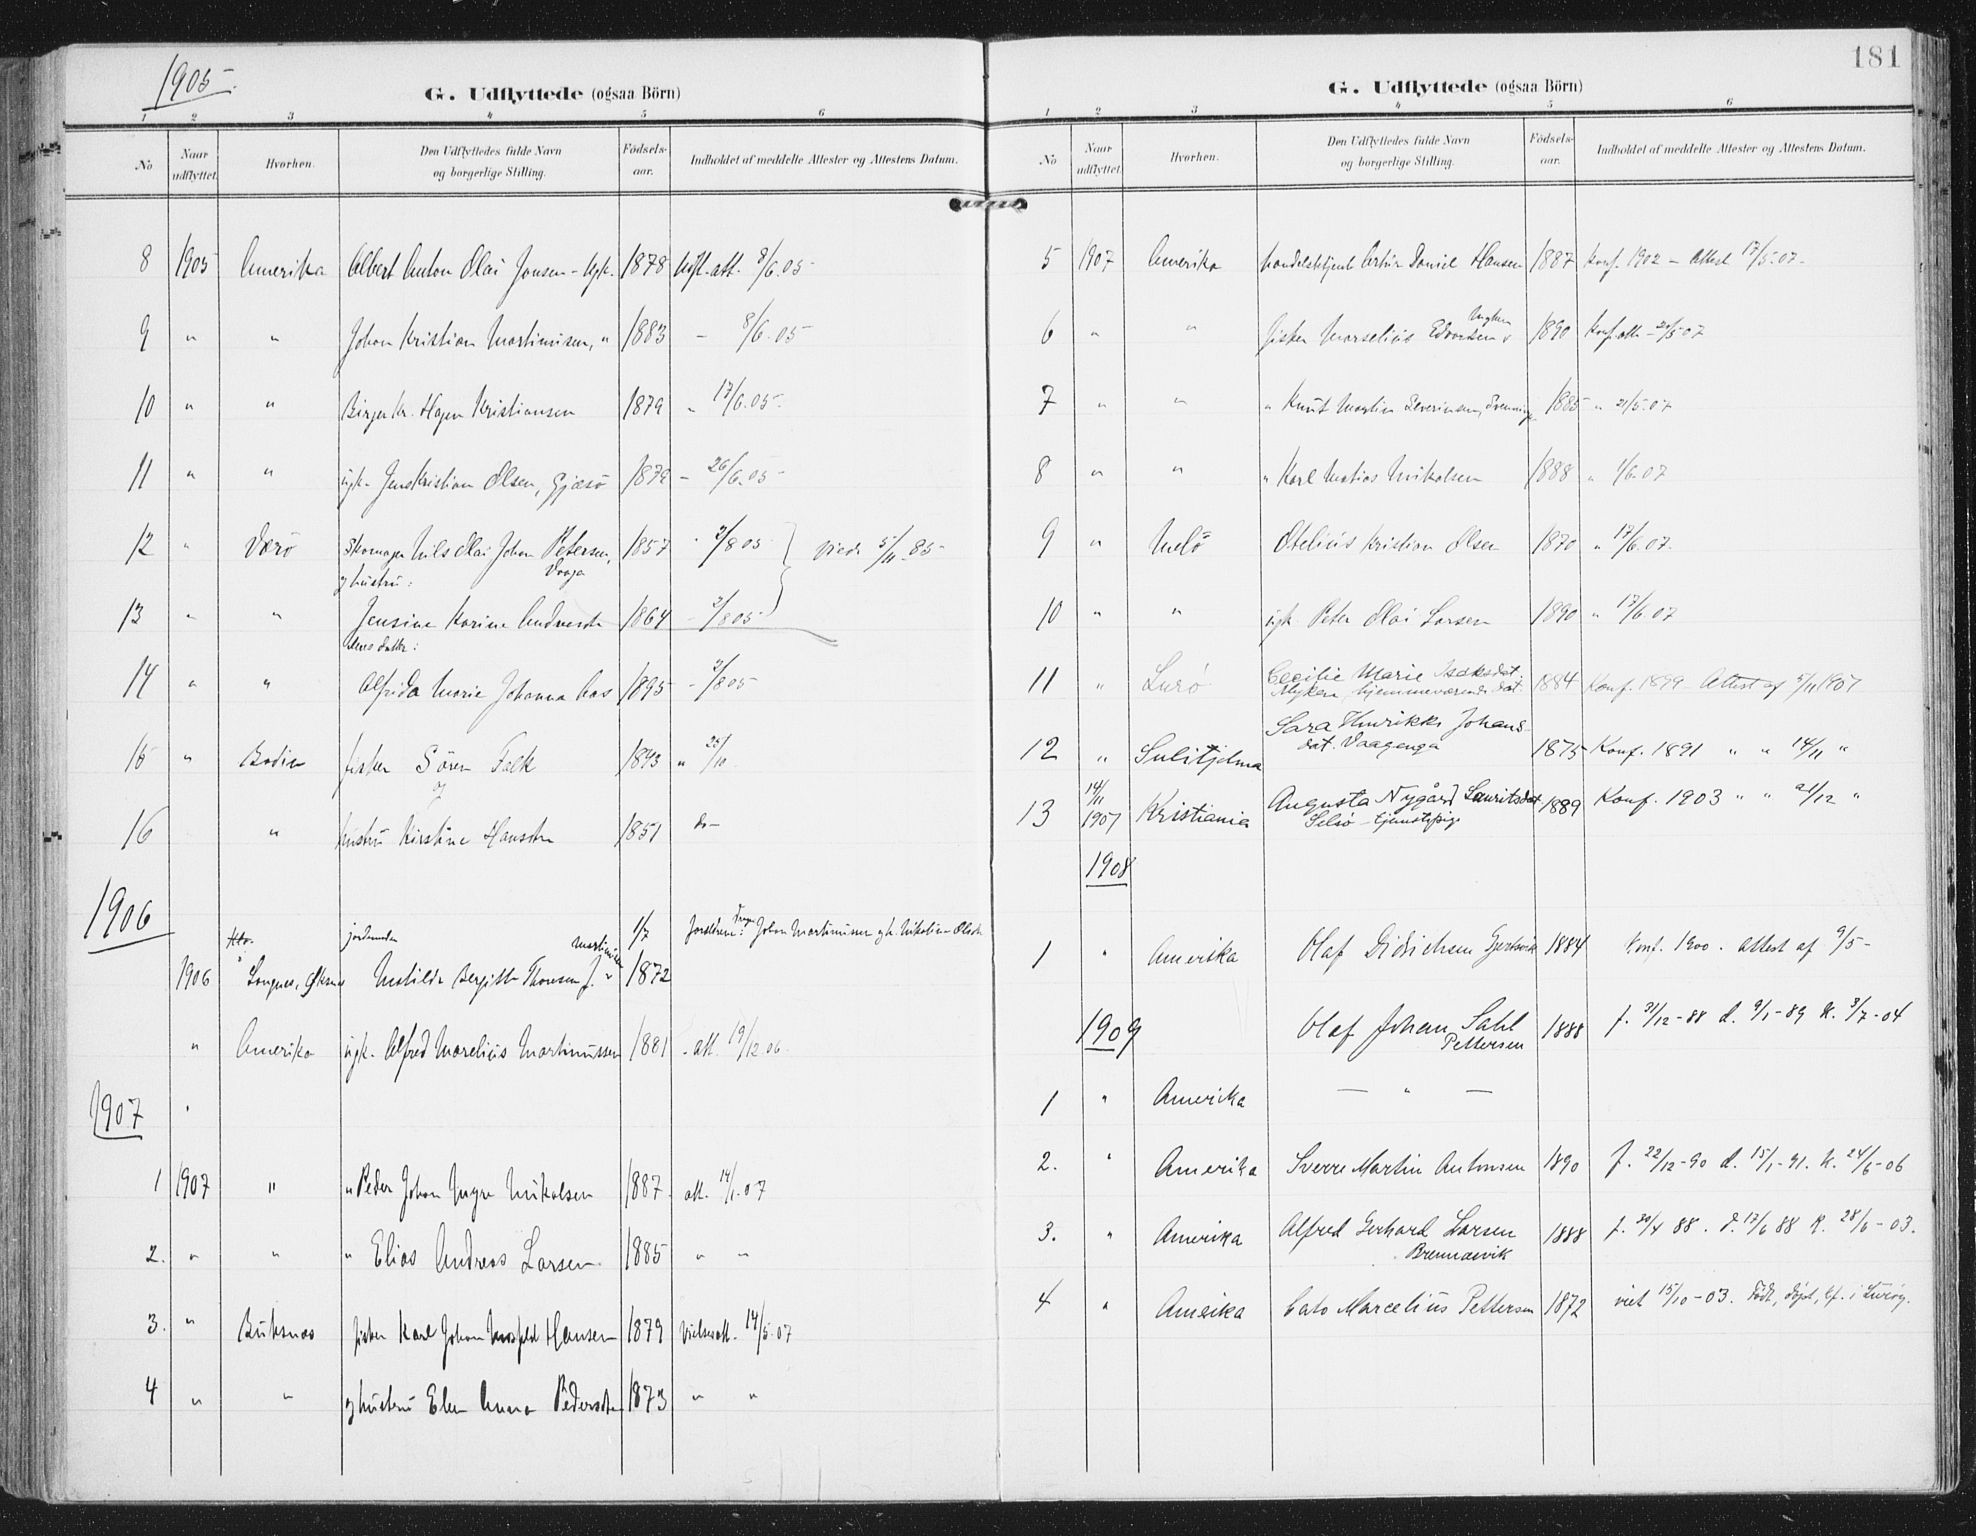 1905.
G. Udflyttede (ogsaa Börn)
1 2 3 4 5 6
No Naar udflyttet. Hvorhen. Den Udflyttedes fulde Navn og borgerlige Stilling. Födsels-aar. Indholdet af meddelte Attester og Attestens Datum.
8 1905 Amerika Albert Anton Olai Jensen - 1878 att. 8/6.05
9 " " Johan Kristian Martinusen, " 1883 - 8/6.05
10 " " Birger Kr. Hagen Kristiansen 1879 " 17/6.05.
11 " " ugk. Jens Kristian Olsen, Gjæsö 1879 - 26/6.05
12 " Værö Skomager Nils Olai Johan Petersen, 1857 " 2/8 05 } viede 5/11 85
Vaaga
og hustru:
13 " " Jensine Karine Andreasdtr 1864 - 2/8 05
deres datter:
14 " " Alfrida Marie Johanna 1895 - 2/8 05
15 " Bodin fisker Sören Falk 1843 " 25/10
og
16 " hustru Kirstine Hansdtr 1851 do
1906
jordmoder Martinusen 1/7 Forældrene: Johan Martinussen og h. Nikoline Olsdtr
1906 Langnes, Øksnes Matilde Bergitte Thomsen f. " 1872
" Amerika ugk. Alfred Marelius Martinussen 1881 - att. 19/12.06.
1907 "
1 1907 " " Peder Johan Myre Nikolsen 1887 att. 14/1.07
2. " " " Elias Andreas Larsen. 1885 " "
3. " Buksnes fisker Karl Johan Hansen 1879 Vielsesatt. 14/5.07
4 " " og hustru Elen Anna Pedersdtr 1873 " "
181
G. Udflyttede (ogsaa Börn)
1 2 3 4 5 6
No Naar udflyttet. Hvorhen. Den Udflyttedes fulde Navn og borgerlige Stilling. Födsels-aar. Indholdet af meddelte Attester og Attestens Datum.
5 1907 Amerika handelsbetjent Artur Daniel Hansen 1887 Konf. 1902 - Attest 17/5.07.
Myken
6 " " fisker Marselius Edvardsen 1890 Konf. att. - 20/5 07
7 " " " Knut Martin Severinsen, 1885 " 21/5.07
8 " " " Karl Matias Nikolsen 1888 " 1/6.07
9 " Melö Otelius Kristian Olsen 1870 " 17/6.07.
10 " " ugk. Peter Olai Larsen 1890 " 17/6.07
11 " Lurö Cecilie Marie Isaksdat. 1884 Konf. 1899 Attest af 5/11 1907
Myken, hjemmeværende dat.
12 " Sulitjelma Sara Henrikke Johans- 1875 Konf. 1891 " " 14/11 "
dat. Vaagenga
13 14/11 1907 Kristiania Augusta Nygård Lauritsdat 1889 Konf. 1903 " " 21/12 "
Selsö - tjenestepige
1908
1 " Amerika Olaf Didrichsen Gjersvik 1884 Konf. 1900. attest af 9/5 -
1909 Olaf Johan Sahl 1888 f. 31/12-88 d. 9/1-89 K. 3/7-04
Pettersen
1 " Amerika — " —
2. " Amerika Sverre Martin Antonsen 1890 f. 22/12-90 d. 15/1-91. K. 24/6-06
3. " Amerika Alfred Gerhard Larsen 1888 f. 30/4 88. d. 17/6 88 K. 28/6-03.
Brennesvik
4 " Amerika Cato Marcelius Pettersen 1872 viet 15/10-03. Født, døpt, kf. i Lurøy.